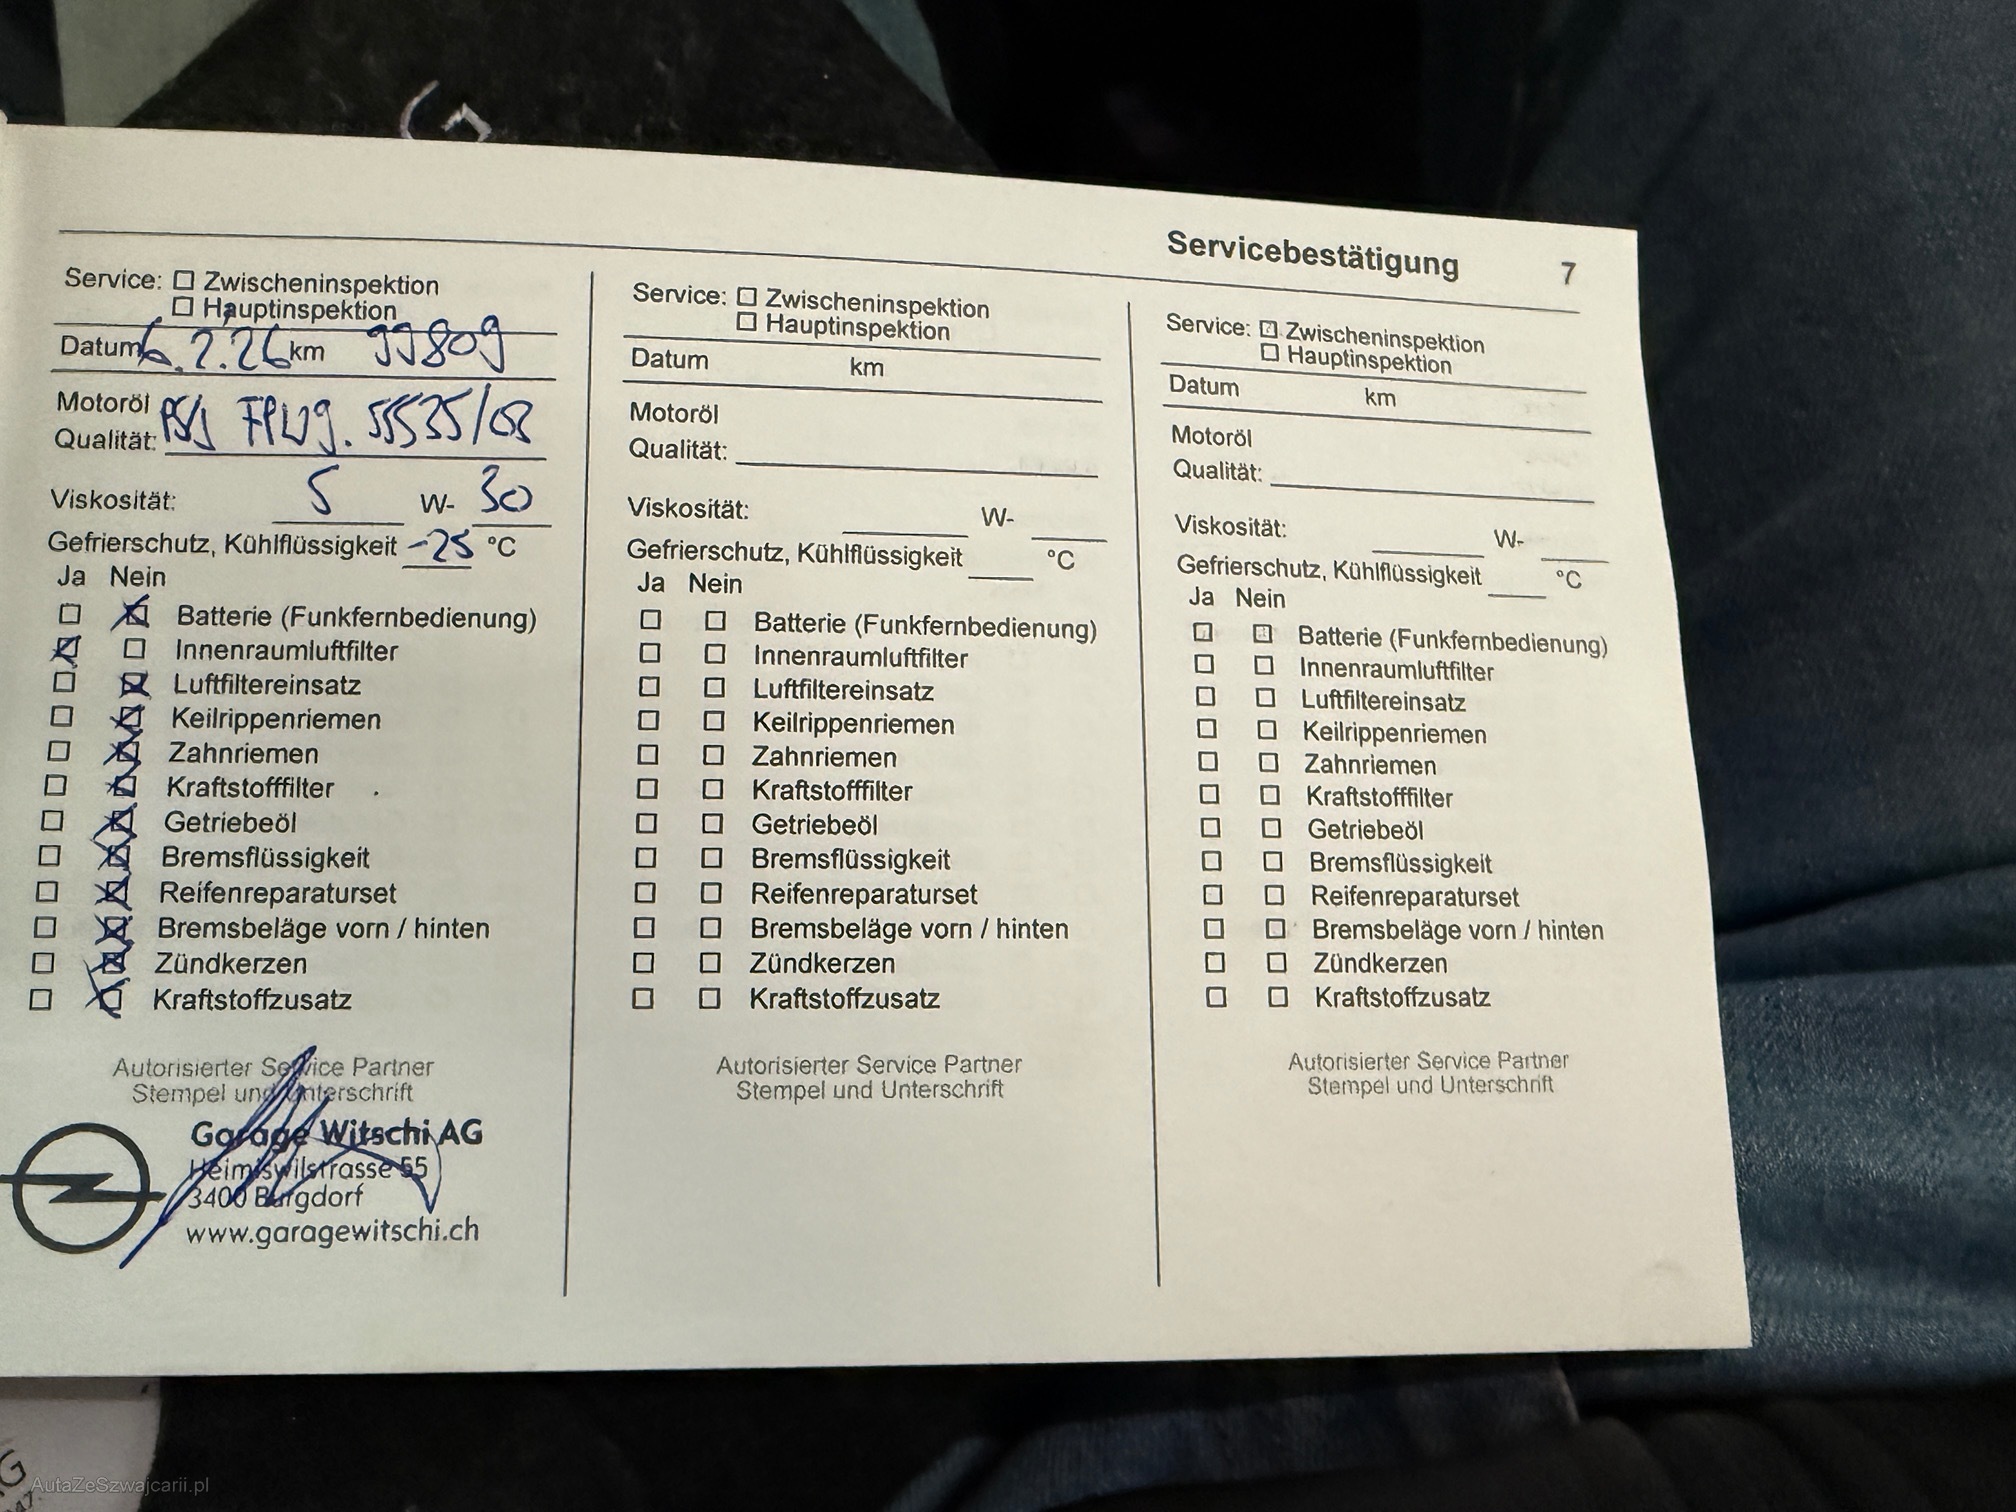 Servicebestätigung 7
Service: Zwischeninspektion
Hauptinspektion
Datum 6.2.26 km 99809
Motoröl
Qualität:
Viskosität: 5 W- 30
Gefrierschutz, Kühlflüssigkeit -25 °C
Ja Nein
Batterie (Funkfernbedienung)
Innenraumluftfilter
Luftfiltereinsatz
Keilrippenriemen
Zahnriemen
Kraftstofffilter
Getriebeöl
Bremsflüssigkeit
Reifenreparaturset
Bremsbeläge vorn / hinten
Zündkerzen
Kraftstoffzusatz
Autorisierter Service Partner
Stempel und Unterschrift
Garage Witschi AG
Heimiswilstrasse 55
3400 Burgdorf
www.garagewitschi.ch
Service: Zwischeninspektion
Hauptinspektion
Datum km
Motoröl
Qualität:
Viskosität: W-
Gefrierschutz, Kühlflüssigkeit °C
Ja Nein
Batterie (Funkfernbedienung)
Innenraumluftfilter
Luftfiltereinsatz
Keilrippenriemen
Zahnriemen
Kraftstofffilter
Getriebeöl
Bremsflüssigkeit
Reifenreparaturset
Bremsbeläge vorn / hinten
Zündkerzen
Kraftstoffzusatz
Autorisierter Service Partner
Stempel und Unterschrift
Service: Zwischeninspektion
Hauptinspektion
Datum km
Motoröl
Qualität:
Viskosität: W-
Gefrierschutz, Kühlflüssigkeit °C
Ja Nein
Batterie (Funkfernbedienung)
Innenraumluftfilter
Luftfiltereinsatz
Keilrippenriemen
Zahnriemen
Kraftstofffilter
Getriebeöl
Bremsflüssigkeit
Reifenreparaturset
Bremsbeläge vorn / hinten
Zündkerzen
Kraftstoffzusatz
Autorisierter Service Partner
Stempel und Unterschrift
AutaZeSzwajcarii.pl